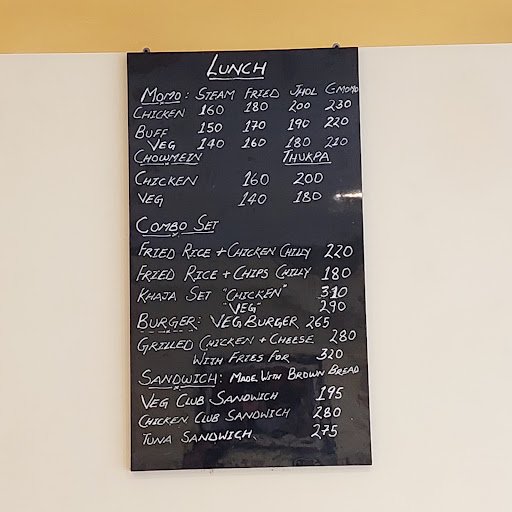 LUNCH
MOMO: STEAM FRIED JHOL C-MOMO
CHICKEN 160 180 200 230
BUFF 150 170 190 220
VEG 140 160 180 210
CHOWMEIN THUKPA
CHICKEN 160 200
VEG 140 180
COMBO SET
FRIED RICE + CHICKEN CHILLY 220
FRIED RICE + CHIPS CHILLY 180
KHAJA SET "CHICKEN" 310
"VEG" 290
BURGER: VEG BURGER 265
GRILLED CHICKEN + CHEESE 280
WITH FRIES FOR 320
SANDWICH: MADE WITH BROWN BREAD
VEG CLUB SANDWICH 195
CHICKEN CLUB SANDWICH 280
TUNA SANDWICH 275